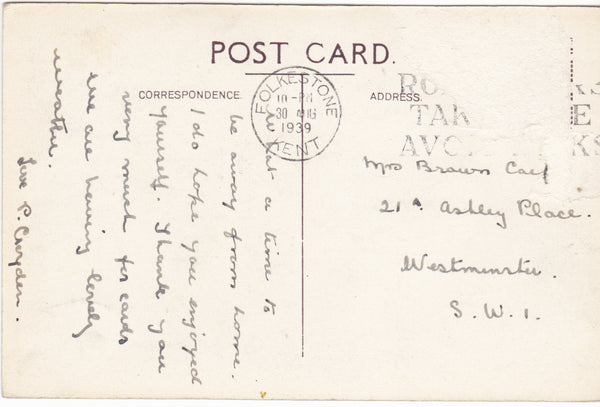 POST CARD.
CORRESPONDENCE.
ADDRESS.
FOLKESTONE
10-PM
30 AUG
1939
KENT
TAK E
AVO KS
What a time to
be away from home.
I do hope you enjoyed
yourself. Thank you
very much for cards
we are having lovely
weather.
Love P. Croyden.
Mrs Brown
21A Ashley Place.
Westminster.
S. W. 1.